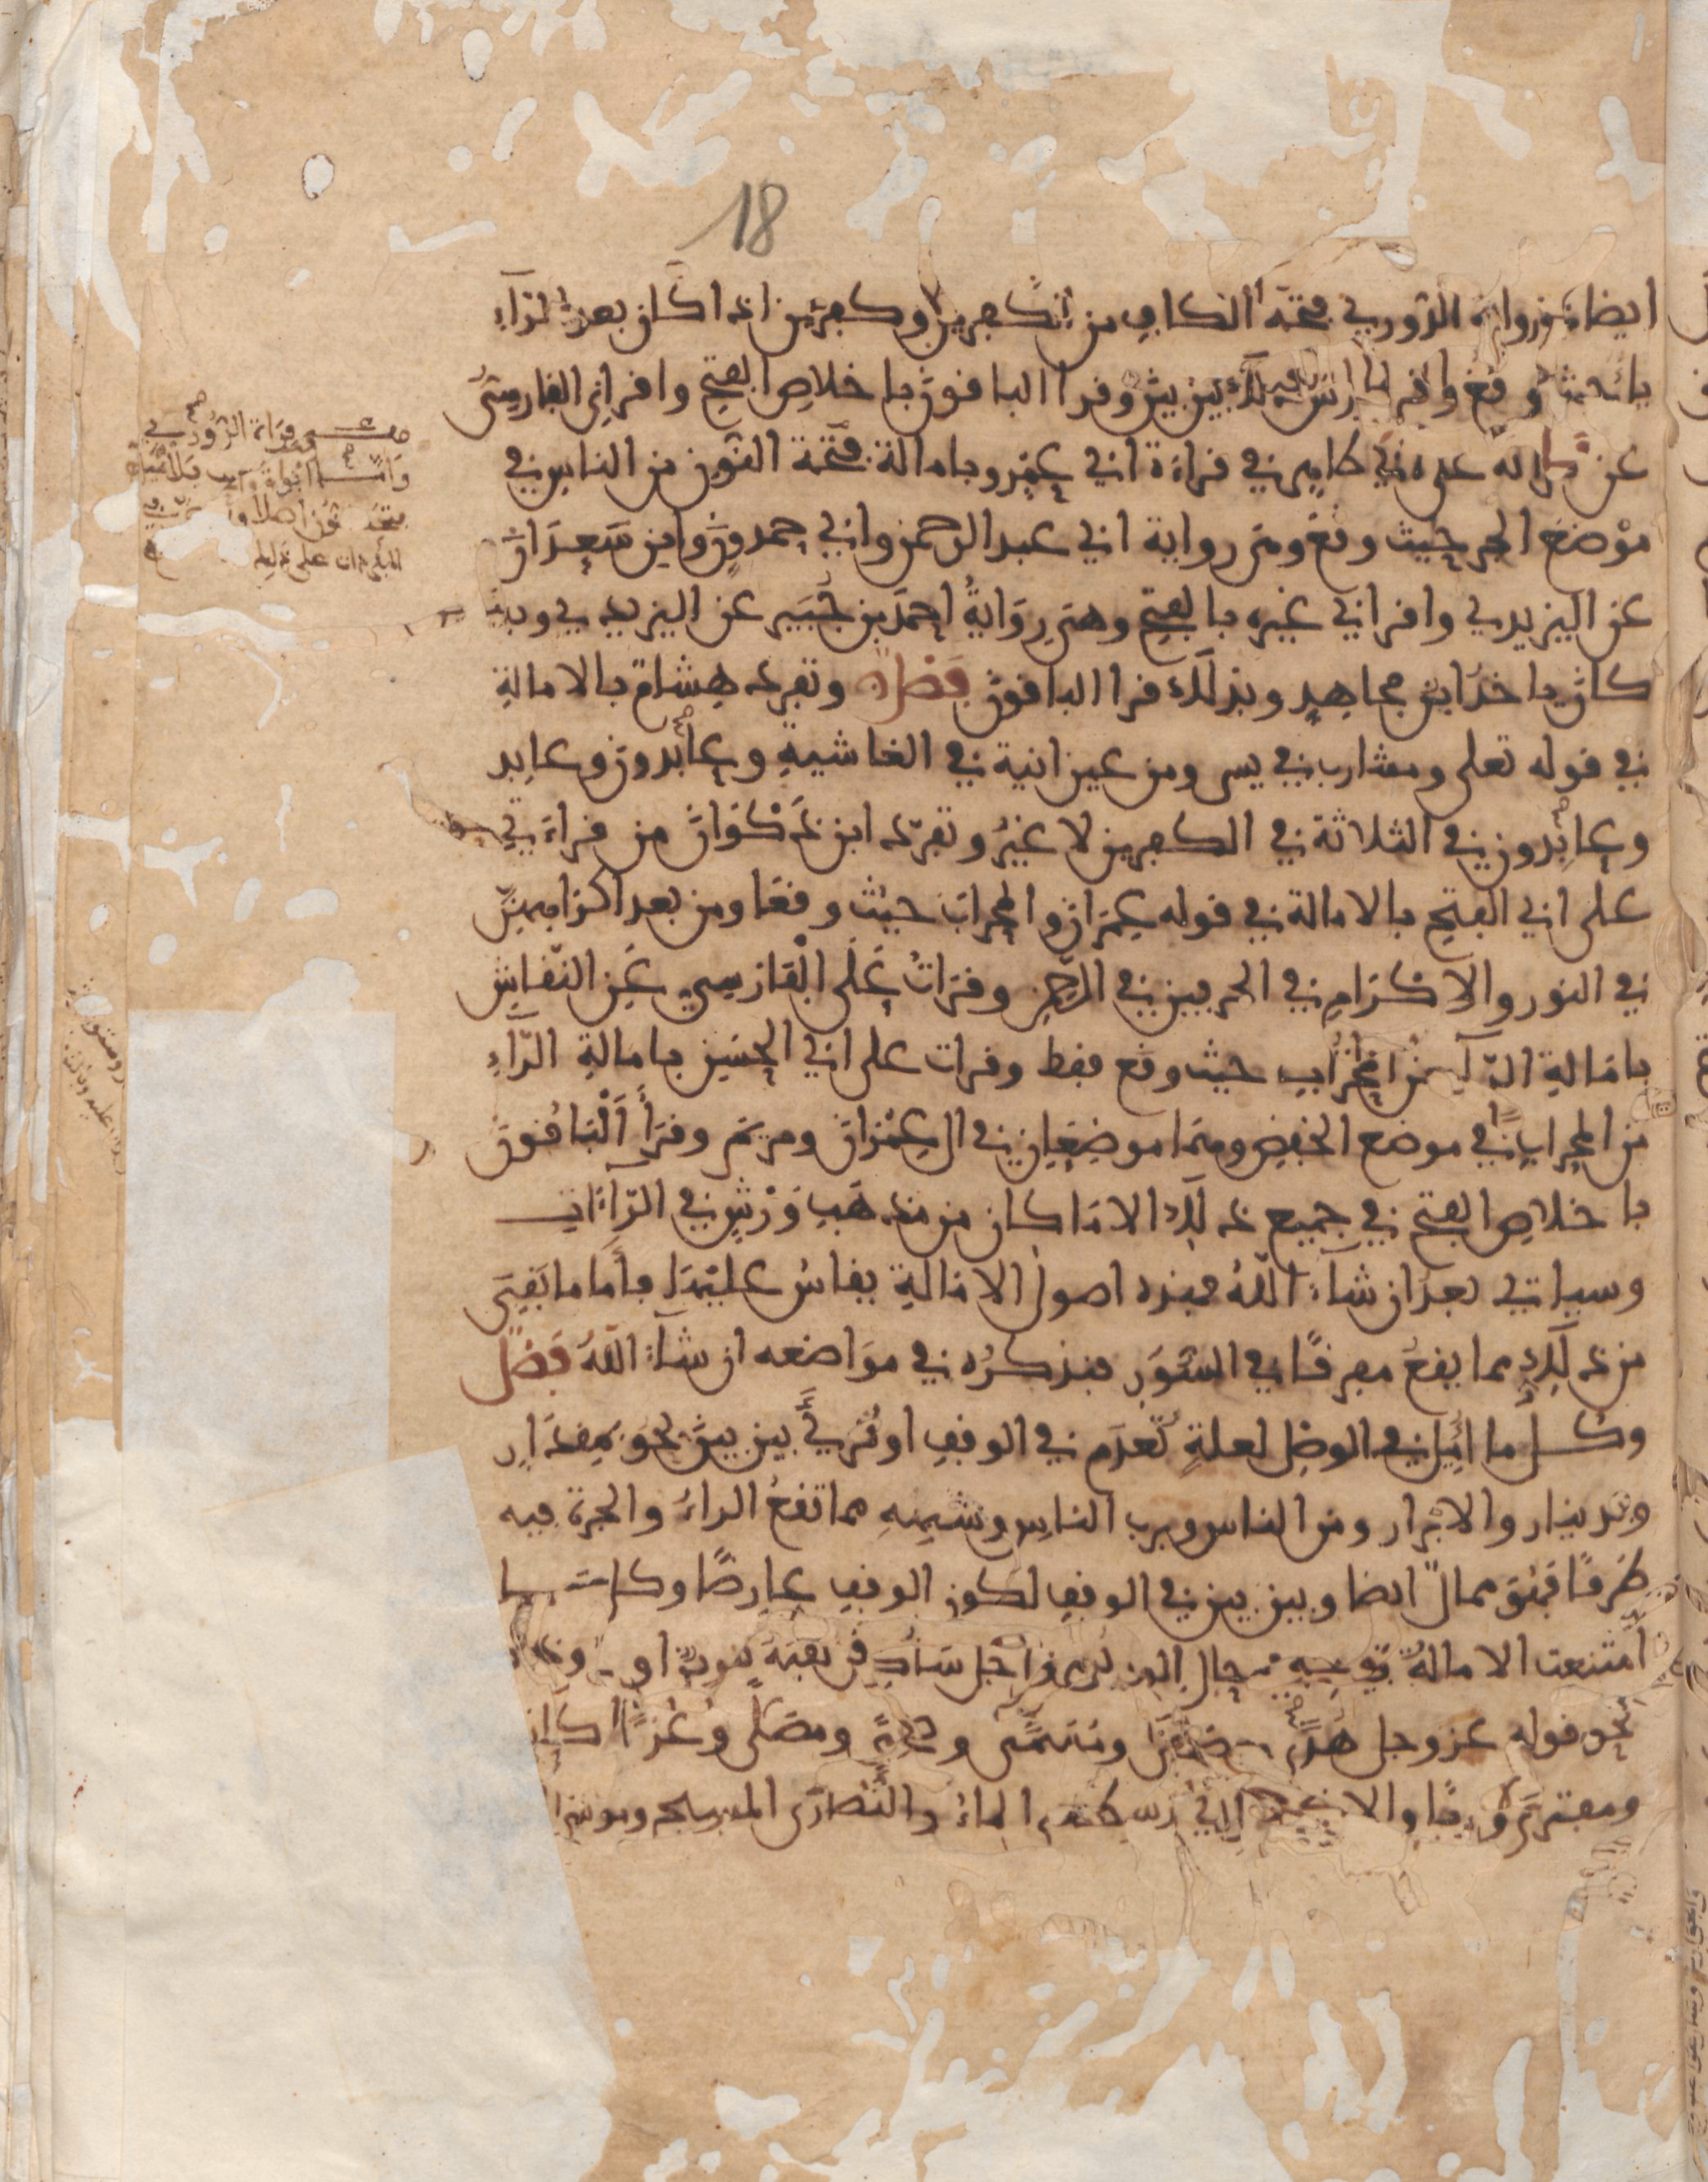 18
ايضا في رواية الدوري فتحة الكاف من الكفرين وكفرين اذا كان بعد الراء
ياء حيث وقع واقرا لورش ذلك بين بين وقرا الباقون باخلاص الفتح واقراني الفارسي
عن قراءته على ابي طاهر في قراءة ابي عمرو بامالة فتحة النون من الناس في
موضع الجر حيث وقع ومن رواية ابي عبد الرحمن وابي حمدون وابن سعدان
عن اليزيدي واقراني غيره بالفتح وهي رواية احمد بن جبير عن اليزيدي وبه
كان ياخذ ابن مجاهد وبذلك قرا الباقون فصل وتفرد هشام بالامالة
في قوله تعلى ومشارب في يس ومن عين انية في الغاشية وعابدون وعابد
وعابدون في الثلاثة في الكفرين لا غير وتفرد ابن ذكوان من قراءتي
على ابي الفتح بالامالة في قوله عمران والمحراب حيث وقعا ومن بعد اكراههن
في النور والاكرام في الحرفين في الرحمن وقرات على الفارسي عن النقاش
بامالة الراء من المحراب حيث وقع فقط وقرات على ابي الحسن بامالة الراء
من المحراب في موضع الخفض وهما موضعان في ال عمران ومريم وقرا الباقون
باخلاص الفتح في جميع ذلك الا ما كان من مذهب ورش في الراءات
وسياتي بعد ان شاء الله فهذه اصول الامالة يقاس عليها فاما ما بقي
من ذلك مما يقع مفرقا في السور فنذكره في مواضعه ان شاء الله فصل
وكل ما اميل في الوصل لعلة تعدم في الوقف او قرئ بين بين نحو بمقدار
وبدينار والابرار ومن الناس وبرب الناس وشبهه مما تقع الراء والجرة فيه
طرفا فهو ممال ايضا وبين بين في الوقف لكون الوقف عارضا وكل ما
امتنعت الامالة فيه في حال الوصل من اجل ساكن لقيه تنوين او
نحو قوله عز وجل هدى ومسمى ومصلى وغزى
ومفترى والاقصا الذي طغا الماء والنصارى المسيح